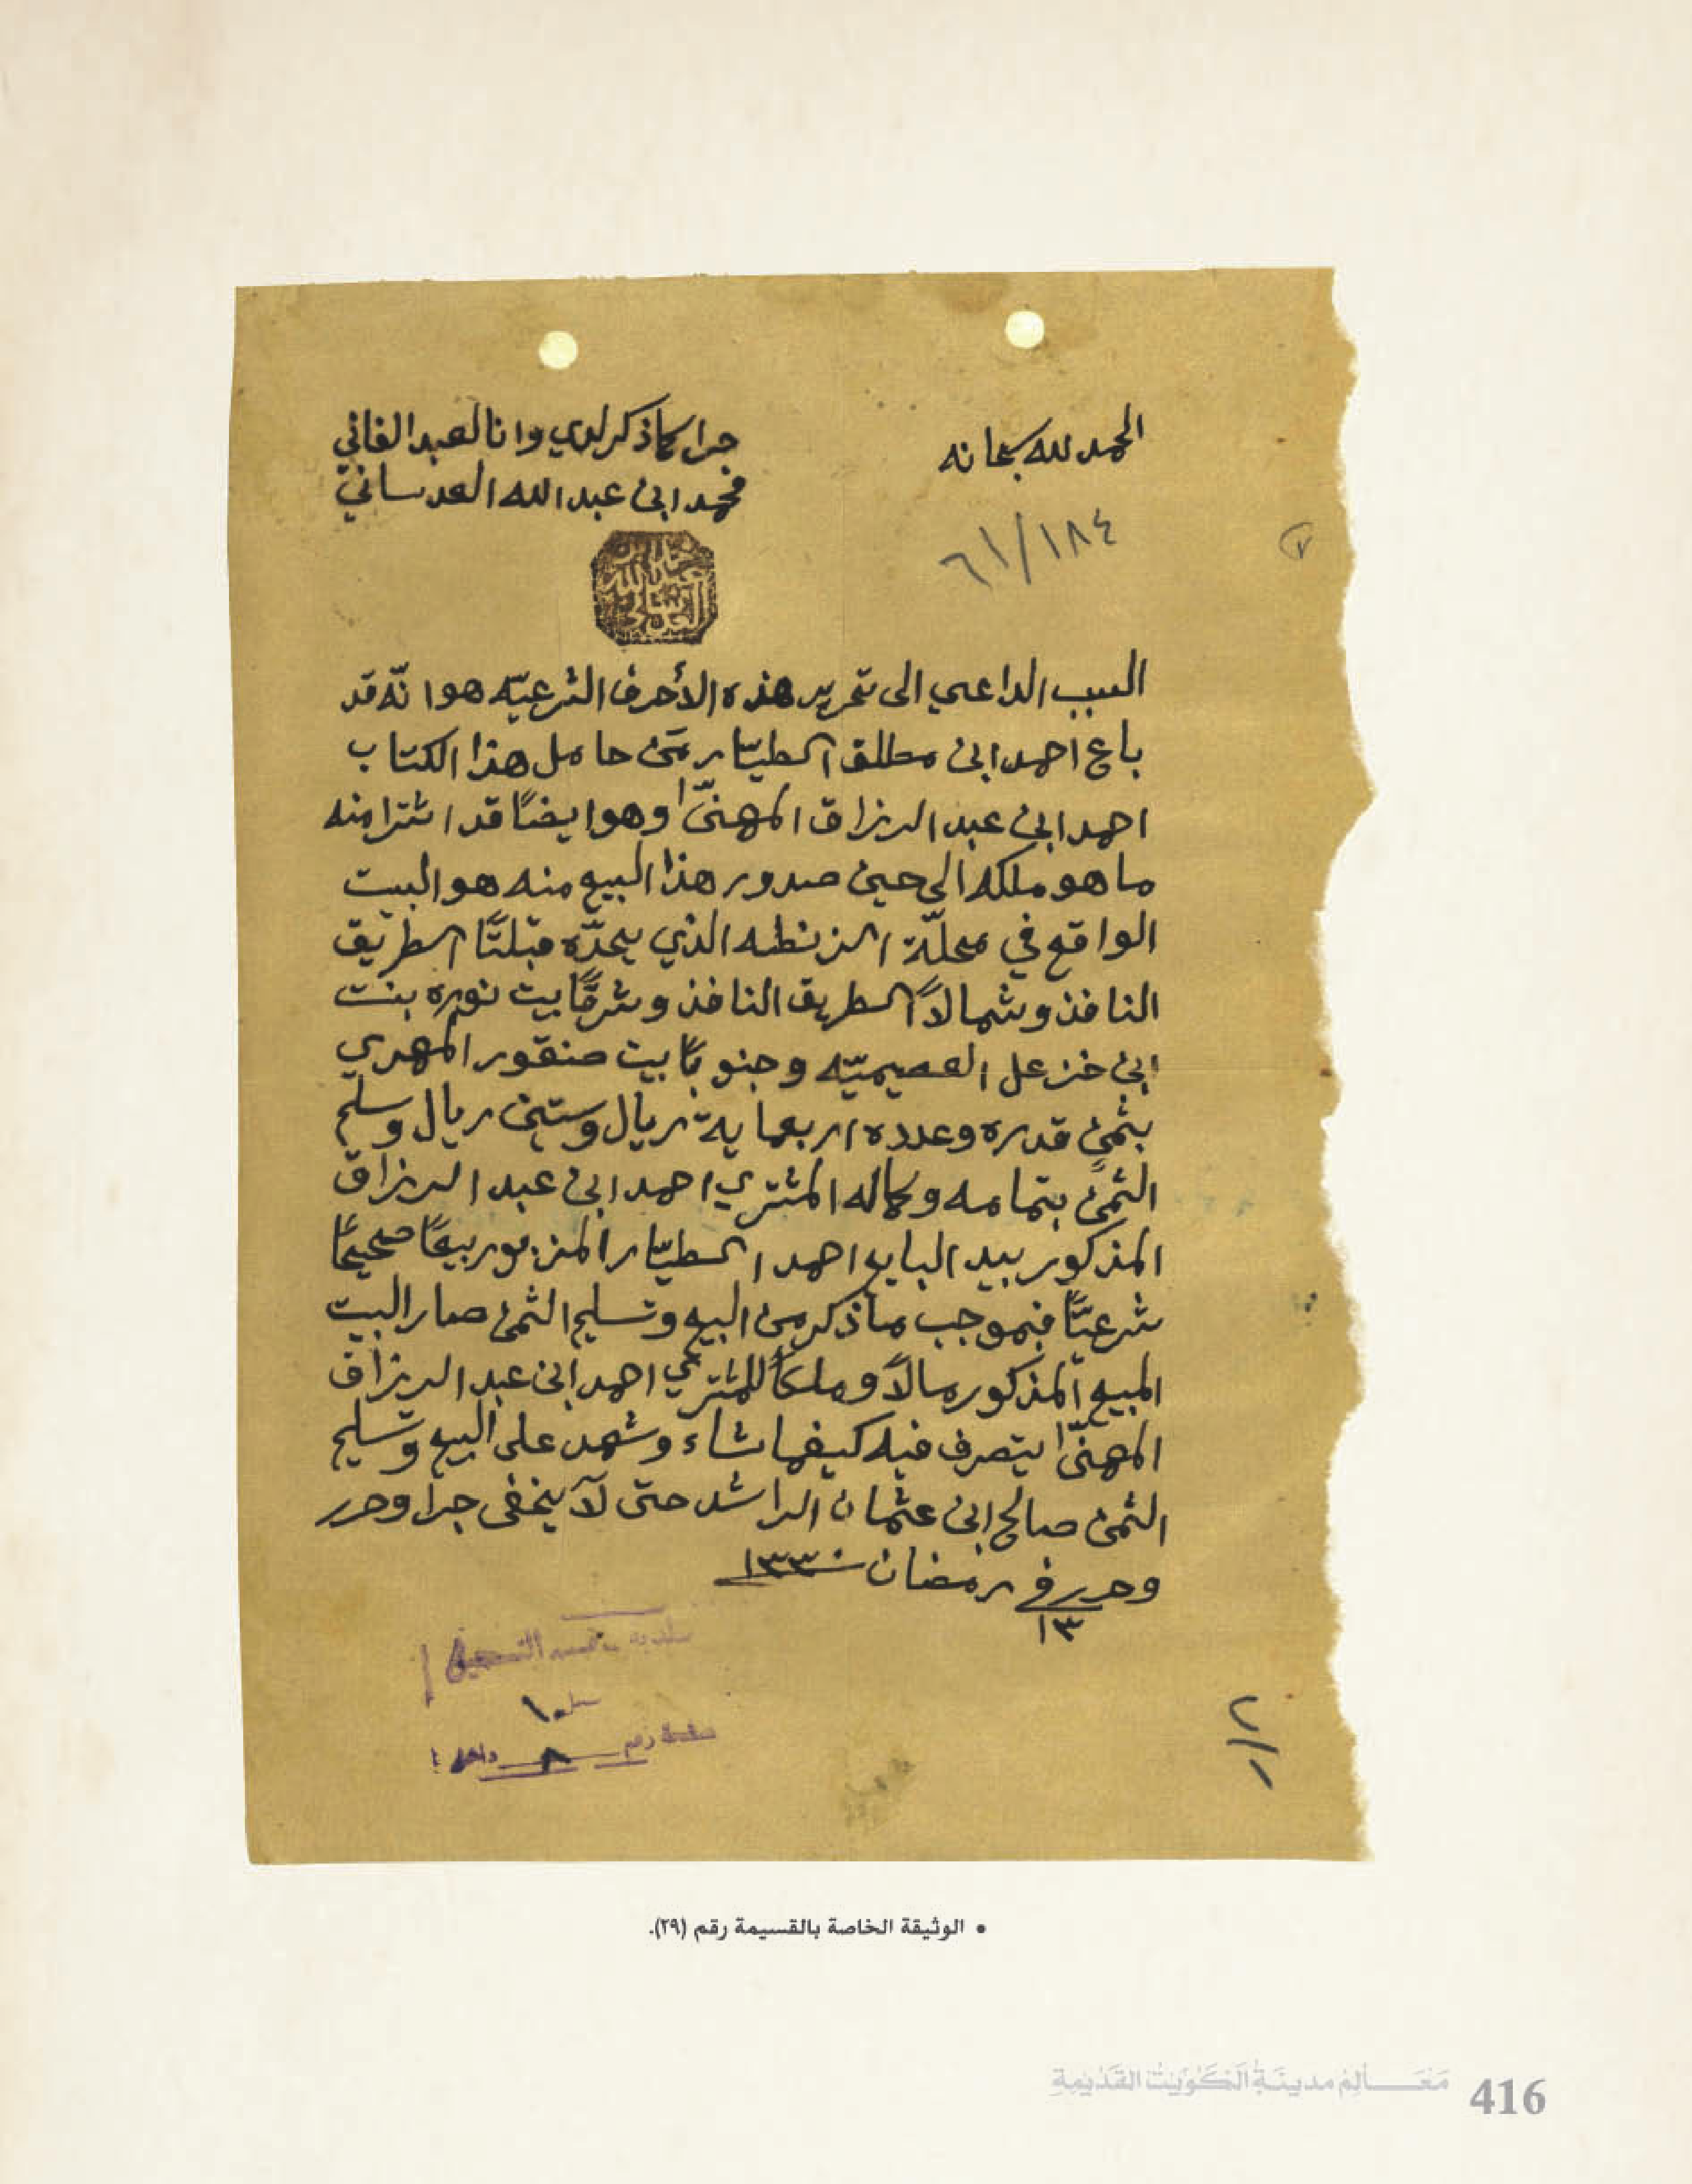 الحمد لله سبحانه
جرا كما ذكر لدي وانا العبد الفاني
محمد ابن عبد الله العدساني
٦١/١٨٤
السبب الداعي الى تحرير هذه الأحرف الشرعيّه هو انّه قد
باع احمد ابن مطلق الطيّار من حامل هذا الكتاب
احمد ابن عبد الرزاق المهنّا وهو ايضًا قد اشترا منه
ما هو ملكه الى حين صدور هذا البيع منه هو البيت
الواقع في محلّة الزنطه الذي يحدّه قبلتًا الطريق
النافذ وشمالاً الطريق النافذ وشرقًا بيت نوره بنت
ابن خزعل العصيميّه وجنوبًا بيت صنقور المهري
بثمن قدره وعدده اربعماية ريال وستين ريال وسلم
الثمن بتمامه وكماله المشتري احمد ابن عبد الرزاق
المذكور بيد البايع احمد الطيّار المزبور بيعًا صحيحًا
شرعيًّا فبموجب ما ذكر من البيع وتسليم الثمن صار البيت
المبيع المذكور مالاً وملكاً للمشتري احمد ابن عبد الرزاق
المهنّا يتصرف فيه كيفما شاء وشهد على البيع وتسليم
الثمن صالح ابن عثمان الراشد حتى لا يخفى جرا وحرر
وحرر في رمضان سنة ١٣٣٠
١٣
التسجيل
١٠
رقم ٨
• الوثيقة الخاصة بالقسيمة رقم (٢٩).
مَعَالِم مدينَة الكوَيت القَديمَة
416